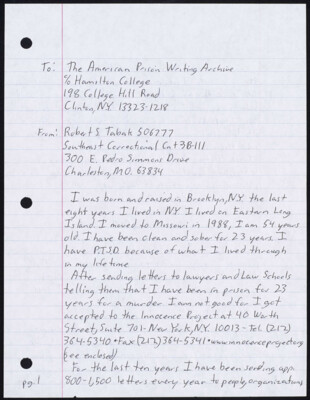 To: The American Prison Writing Archive
% Hamilton College
198 College Hill Road
Clinton, NY 13323-1218
From: Robert S Tabak 506777
Southeast Correctional Cnt 3B-111
300 E. Pedro Simmons Drive
Charleston, MO. 63834
I was born and raised in Brooklyn, NY. the last
eight years I lived in NY I lived on Eastern Long
Island. I moved to Missouri in 1988, I am 54 years
old. I have been clean and sober for 23 years. I
have P.T.S.D. because of what I lived through
in my life time.
After sending letters to lawyers and Law Schools
telling them that I have been in prison for 23
years for a murder I am not good for I got
accepted to the Innocence Project at 40 Worth
Street, Suite 701- New York, NY. 10013 - Tel. (212)
364-5340 • Fax (212) 364-5341 • www.innocenceproject.org
(see enclosed)
For the last ten years I have been sending app.
pg. 1 800-1,500 letters every year to people, organizations